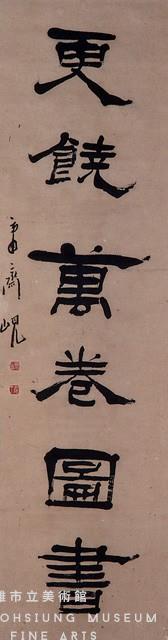 更饒萬卷圖書
聿齋峴
雄市立美術館
OHSIUNG MUSEUM
FINE ARTS